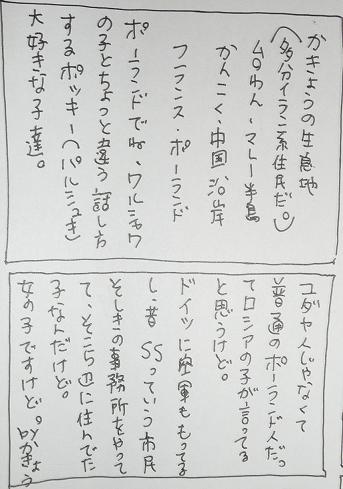 かきょうの生息地
(多分イラン系住民だ。)
台わん、マレー半島
かんこく、中国沿岸
フランス・ポーランド
ポーランドでね、ワルシャワ
の子とちょっと違う話し方
するポッキー(パルシュき)
大好きな子達。
ユダヤ人じゃなくて
普通のポーランド人だっ
てロシアの子が言ってる
と思うけど。
ドイツに空軍ももってる
し、昔SSっていう市民
そしきの事務所をやって
て、そこら辺に住んでた
子なんだけど。
女の子ですけど。byかきょう